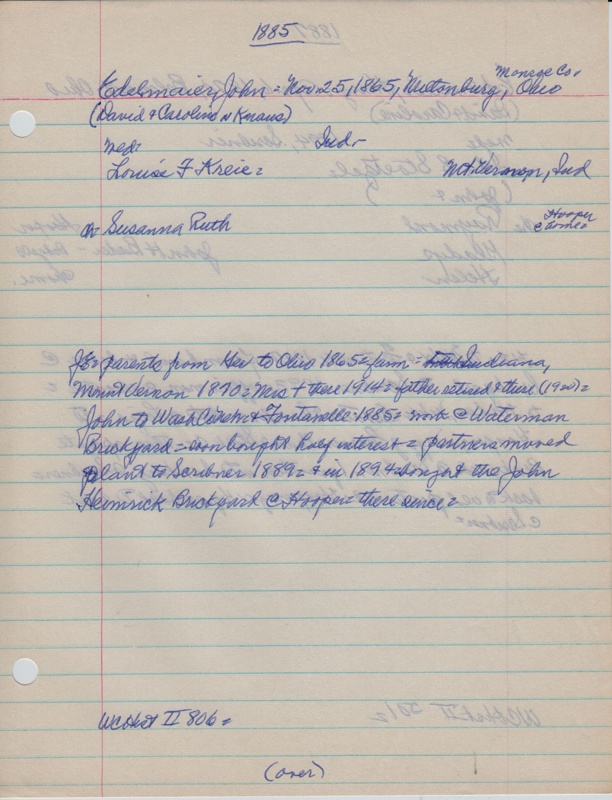 1885
Edelmaier, John = Nov. 25, 1865, Miltonburg, Monroe Co. Ohio
(David & Caroline N Knaus)
med: Ind.
Louise F Kreie = Mt Vernon, Ind
ch Susanna Ruth Hooper
c home
JE = parents from Ger to Ohio 1865 = fam = Indiana,
Mount Vernon 1870 = Mrs + there 1914 = father retired & there (1920) =
John to Wash Co & Fontanelle 1885 = work @ Waterman
Brickyard = soon bought half interest = partners moved
plant to Scribner 1889 = & in 1894 bought the John
Heimrick Brickyard @ Hooper = there since =
WCoHst II 806 =
(over)